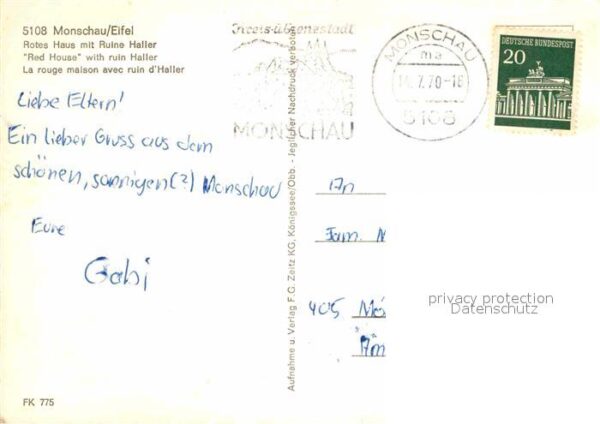 5108 Monschau/Eifel
Rotes Haus mit Ruine Haller
"Red House" with ruin Haller
La rouge maison avec ruin d'Haller
Liebe Eltern!
Ein lieber Gruss aus dem
schönen, sonnigen(?) Monschau
Eure
Gabi
FK 775
Aufnahme u. Verlag F. G. Zeitz KG, Königssee/Obb. - Jeglicher Nachdruck verboten
MONSCHAU
MONSCHAU
ma
7.70-18
5108
DEUTSCHE BUNDESPOST
20
An
Fam.
405
privacy protection
Datenschutz